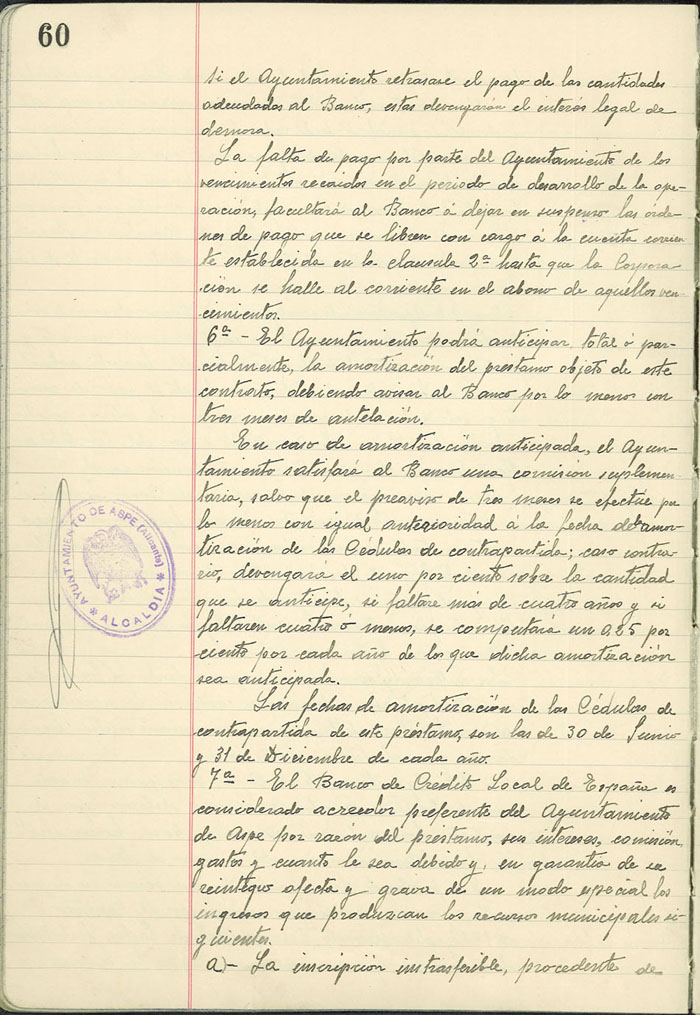 60
Si el Ayuntamiento retrasase el pago de las cantidades
adeudadas al Banco, estas devengarán el interes legal de
demora.
La falta de pago por parte del Ayuntamiento de los
vencimientos recaidos en el periodo de desarrollo de la ope-
ración, facultará al Banco á dejar en suspenso las órde-
nes de pago que se libren con cargo á la cuenta corrien
te establecida en la clausula 2ª hasta que la Corpora
ción se halle al corriente en el abono de aquéllos ven-
cimientos.
6ª - El Ayuntamiento podrá anticipar, total ó par-
cialmente, la amortización del préstamo objeto de este
contrato, debiendo avisar al Banco por lo menos con
tres meses de antelación.
En caso de amortización anticipada, el Ayun-
tamiento satisfará al Banco una comision suplemen-
taria, salvo que el preaviso de tres meses se efectúe por
lo menos con igual anterioridad á la fecha de amor-
tización de las Cédulas de contrapartida; caso contra-
rio, devengará el uno por ciento sobre la cantidad
que se anticipe, si faltare más de cuatro años y si
faltaren cuatro ó menos, se computará un 0,25 por
ciento por cada año de los que dicha amortización
sea anticipada.
Las fechas de amortización de las Cédulas de
contrapartida de este préstamo, son las de 30 de Junio
y 31 de Diciembre de cada año.
7ª - El Banco de Crédito Local de España es
considerado acreedor preferente del Ayuntamiento
de Aspe por razón del préstamo, sus intereses, comisión,
gastos y cuanto le sea debido y, en garantia de su
reintegro afecta y grava de un modo especial los
ingresos que produzcan los recursos municipales si-
guientes.
a)- La inscripción instrasferible, procedente de
AYUNTAMIENTO DE ASPE (Alicante)
* ALCALDIA *